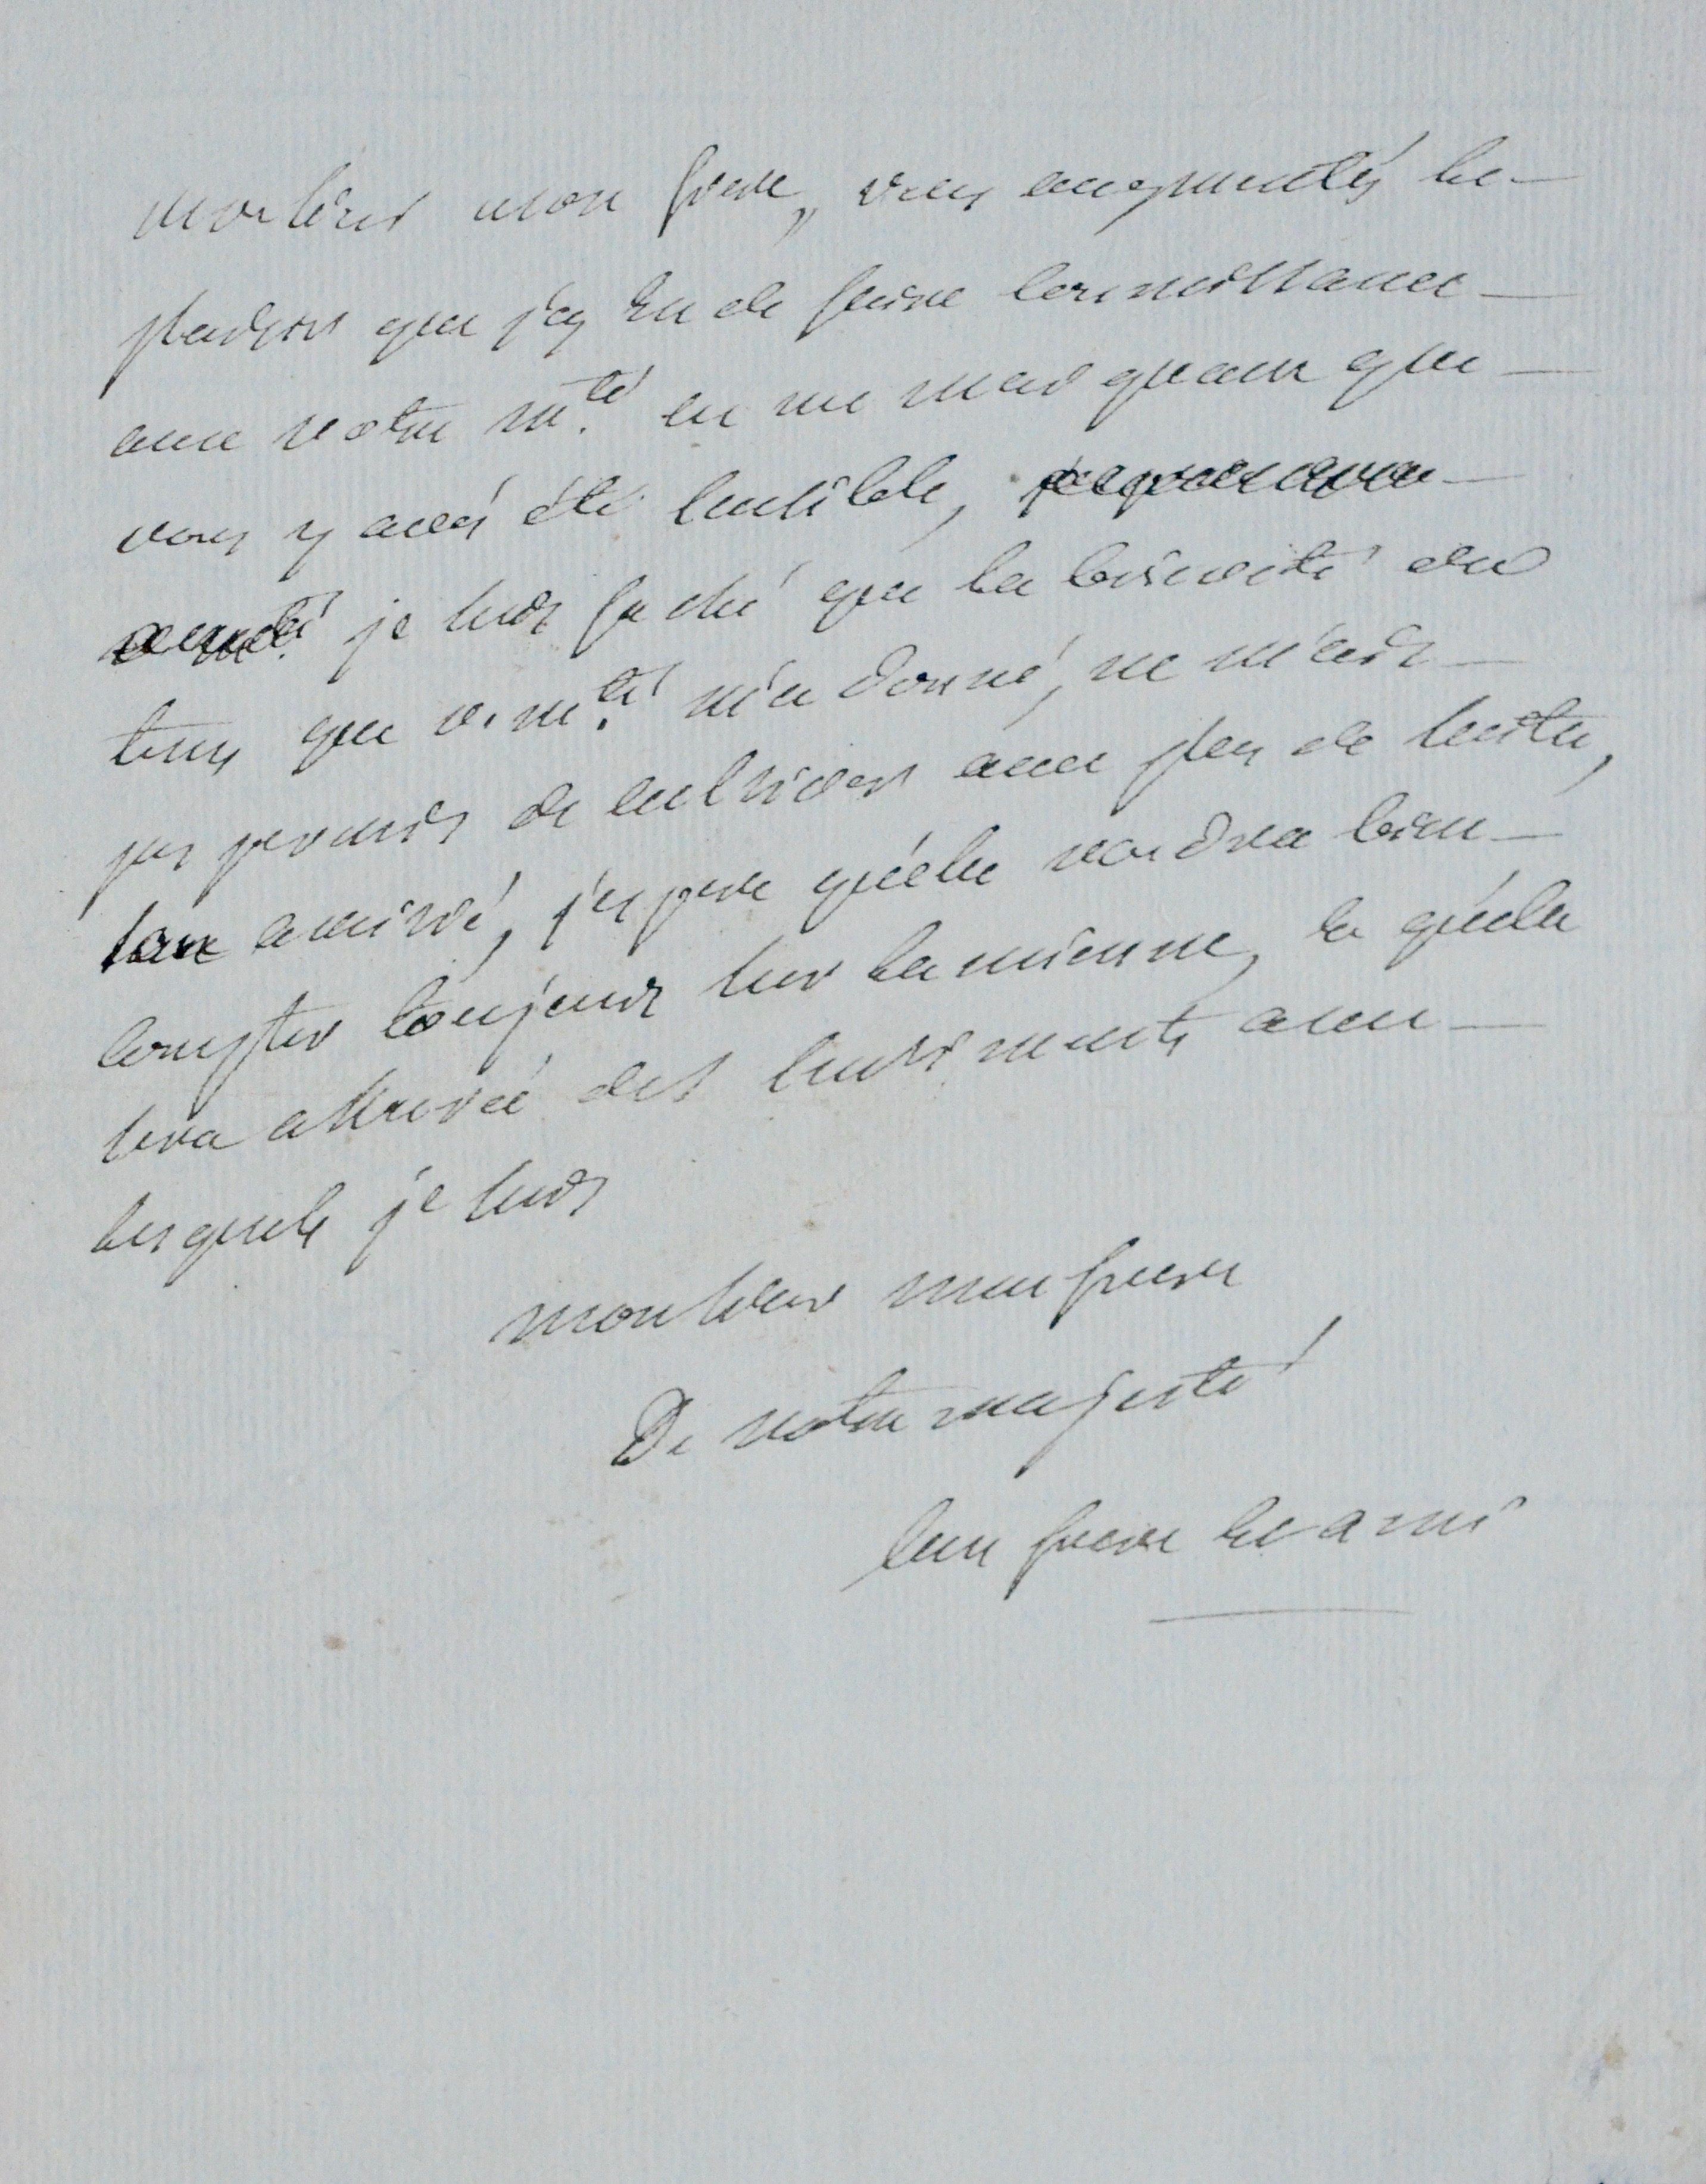 monsieur mon frere, vous augmentés le
plaisir que j'ay eu de faire connoissance
avec votre m.té en me marquant que
vous y avés été sensible,
je suis faché que la brieveté du
tems que v. m.té m'a donné, ne m'ait
pas permis de cultiver avec plus de suite,
son amitié, j'espere qu'elle voudra bien
compter toujours sur la mienne, et qu'elle
sera assurée des sentiments avec
lesquels je suis
monsieur mon frere
De votre majesté
bon frere et ami